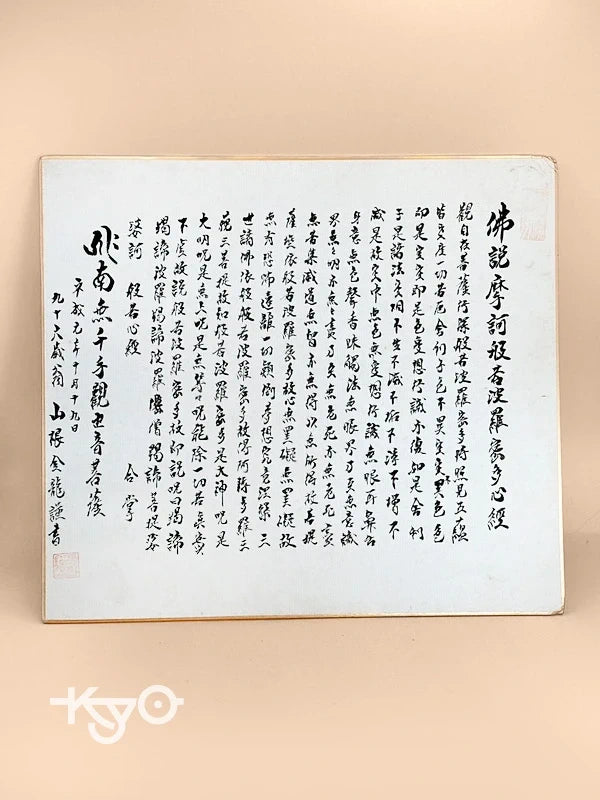 佛説摩訶般若波羅蜜多心經
觀自在菩薩行深般若波羅蜜多時照見五蘊
皆空度一切苦厄舍利子色不異空空不異色色
即是空空即是色受想行識亦復如是舍利
子是諸法空相不生不滅不垢不淨不増不
減是故空中無色無受想行識無眼耳鼻舌
身意無色聲香味觸法無眼界乃至無意識
界無々明亦無々明盡乃至無老死亦無老死盡
無苦集滅道無智亦無得以無所得故菩提
薩埵依般若波羅蜜多故心無罣礙無罣礙故
無有恐怖遠離一切顛倒夢想究竟涅槃三
世諸佛依般若波羅蜜多故得阿耨多羅三
藐三菩提故知般若波羅蜜多是大神呪是
大明呪是無上呪是無等々呪能除一切苦真實
不虚故説般若波羅蜜多故即説呪曰羯諦
羯諦波羅羯諦波羅僧羯諦菩提娑
婆訶 般若心經 合掌
南無千手觀世音菩薩
平成元年十月十九日
九十六歳翁 山根金龍謹書
KYO